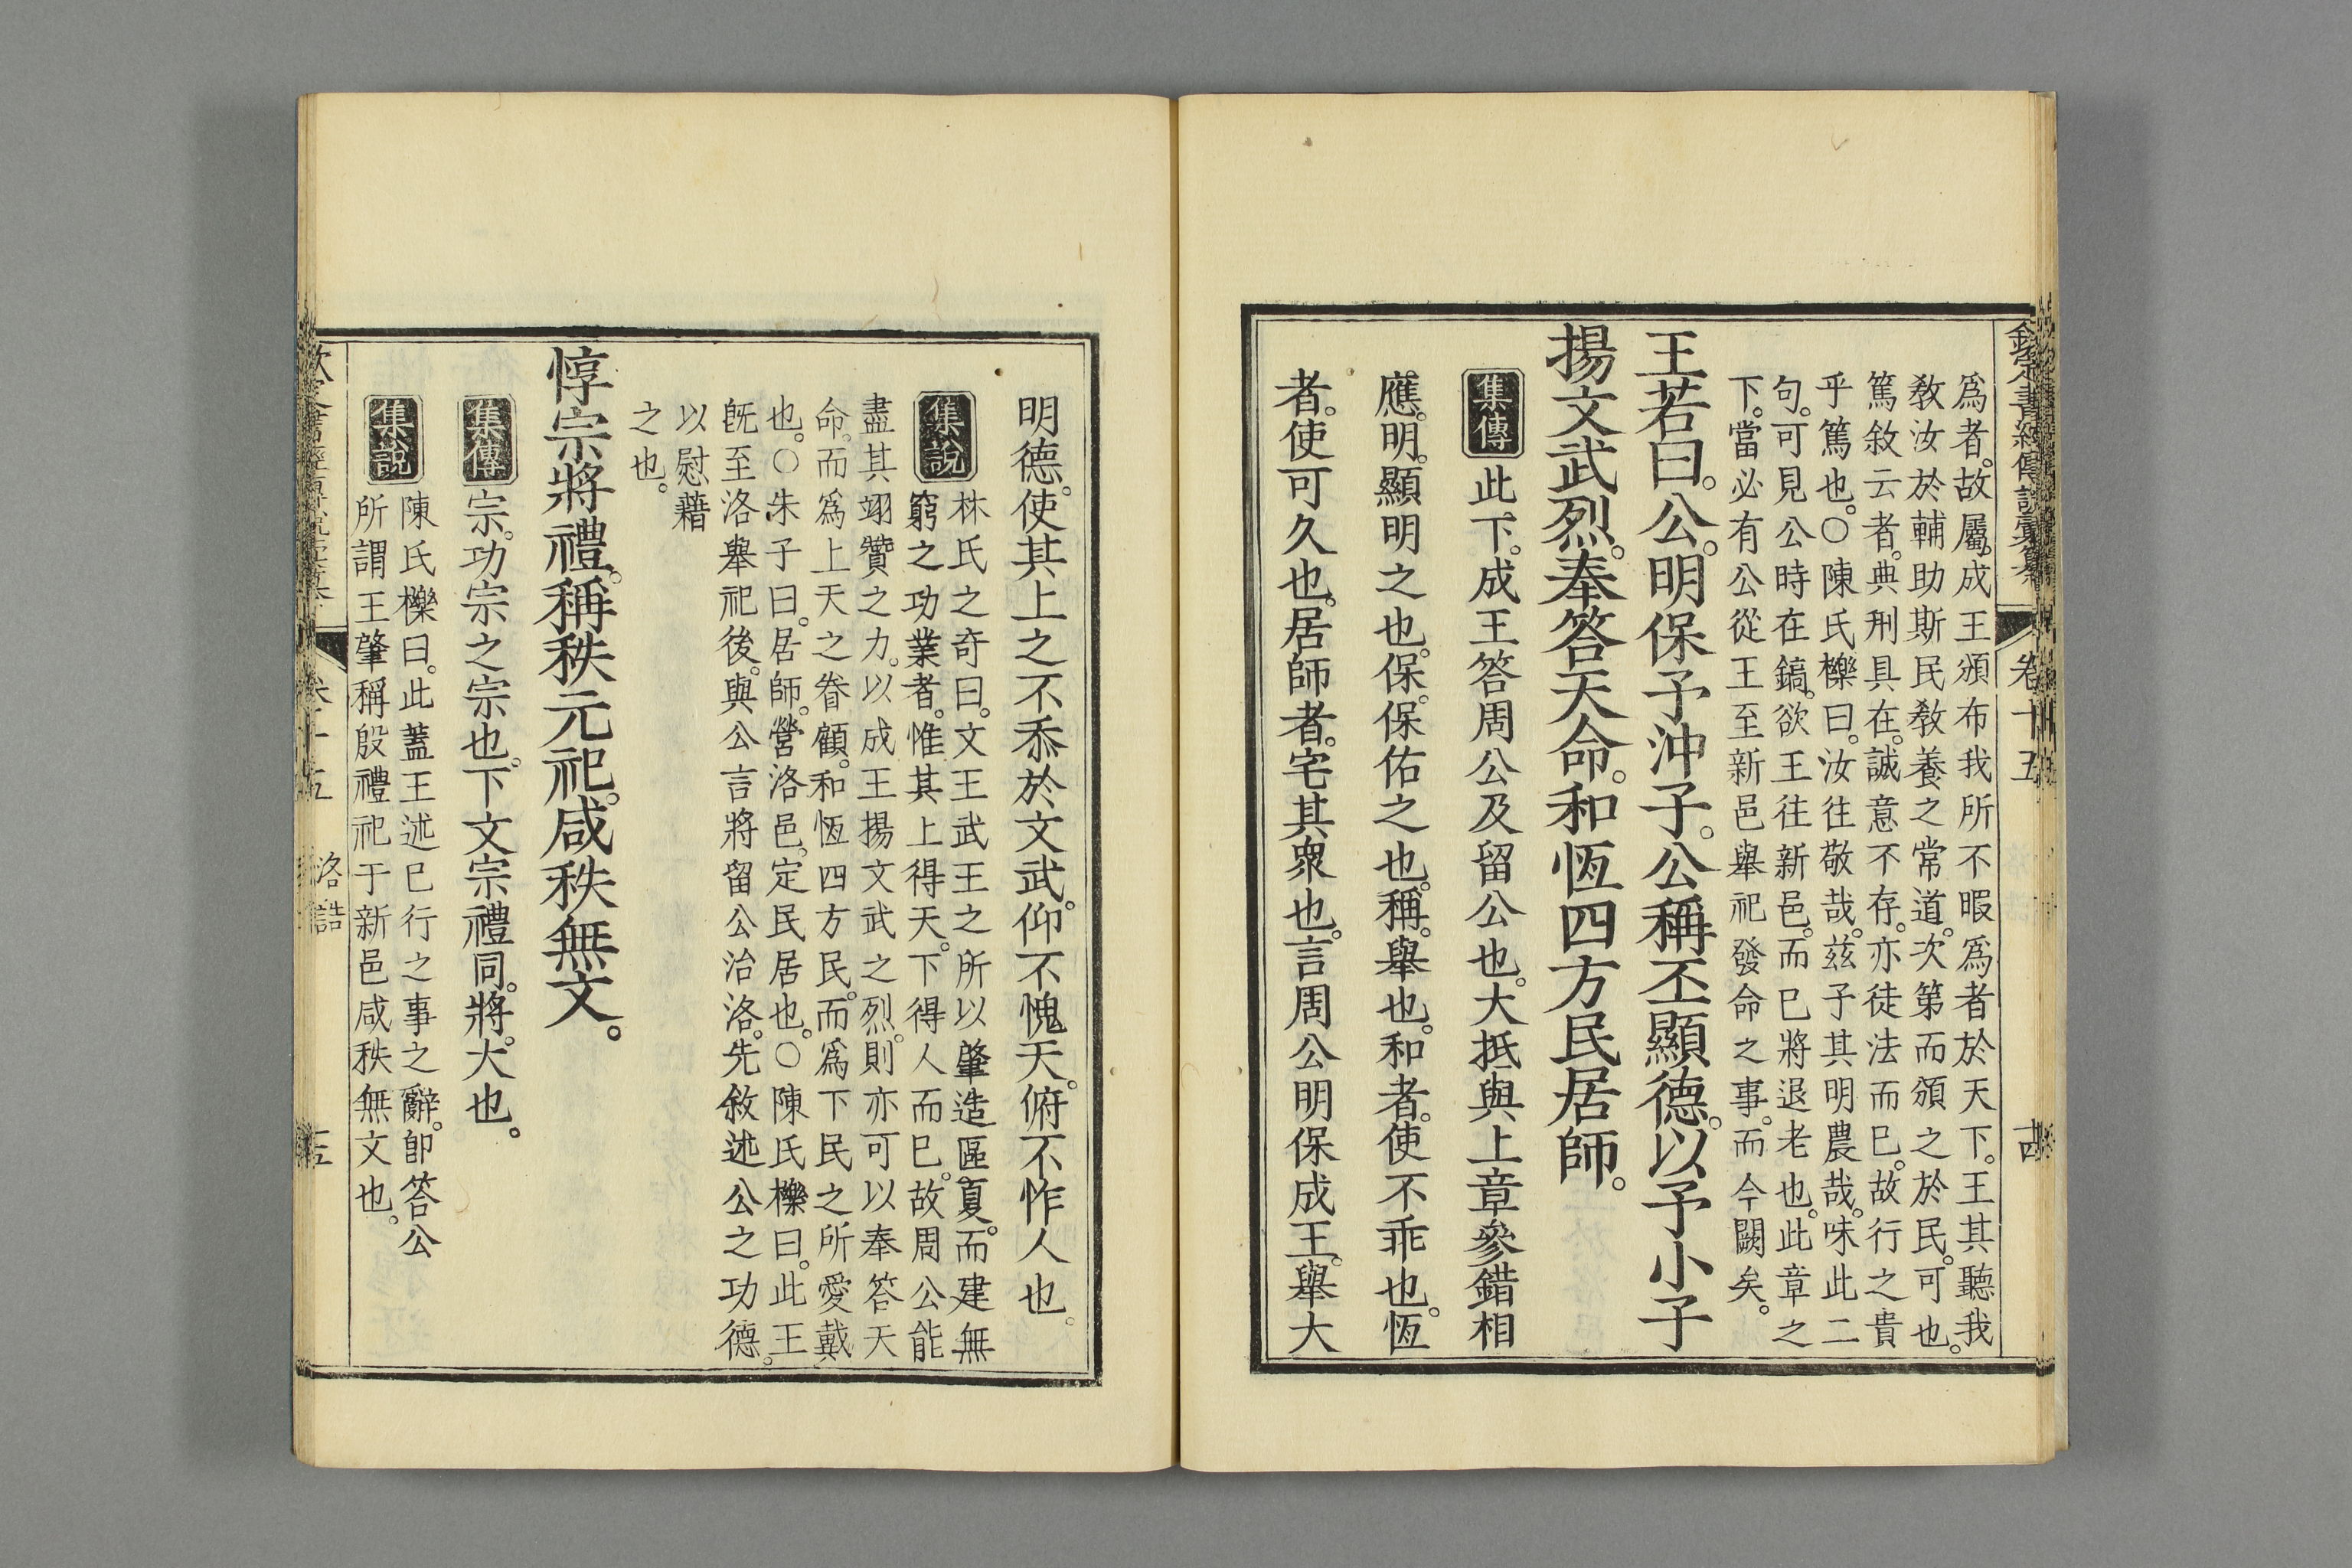 欽定書經傳說彙纂 卷十五
爲者。故屬。成王頒布我所不暇爲者於天下。王其聽我
敎汝於輔助斯民敎養之常道。次第而頒之於民。可也。
篤敘云者。典刑具在。誠意不存。亦徒法而已。故行之貴
乎篤也。○陳氏櫟曰。汝往敬哉。茲予其明農哉。味此二
句。可見公時在鎬。欲王往新邑。而已將退老也。此章之
下。當必有公從王至新邑舉祀發命之事。而今闕矣。
王若曰。公。明保予沖子。公稱丕顯德。以予小子
揚文武烈。奉答天命。和恆四方民。居師。
集傳 此下。成王答周公及留公也。大抵與上章參錯相
應。明。顯明之也。保。保佑之也。稱。舉也。和者。使不乖也。恆
者。使可久也。居師者。宅其衆也。言周公明保成王。舉大
明德。使其上之不忝於文武。仰不愧天。俯不怍人也。
集說 林氏之奇曰。文王武王之所以肇造區夏。而建無
窮之功業者。惟其上得天。下得人而已。故周公能
盡其翊贊之力。以成王揚文武之烈。則亦可以奉答天
命。而爲上天之眷顧。和恆四方民。而爲下民之所愛戴
也。○朱子曰。居師。營洛邑。定民居也。○陳氏櫟曰。此王
旣至洛舉祀後。與公言將留公治洛。先敘述公之功德。
以慰藉
之也。
惇宗將禮。稱秩元祀。咸秩無文。
集傳 宗。功宗之宗也。下文宗禮同。將。大也。
集說 陳氏櫟曰。此蓋王述已行之事之辭。卽答公
所謂王肇稱殷禮祀于新邑咸秩無文也。
洛誥